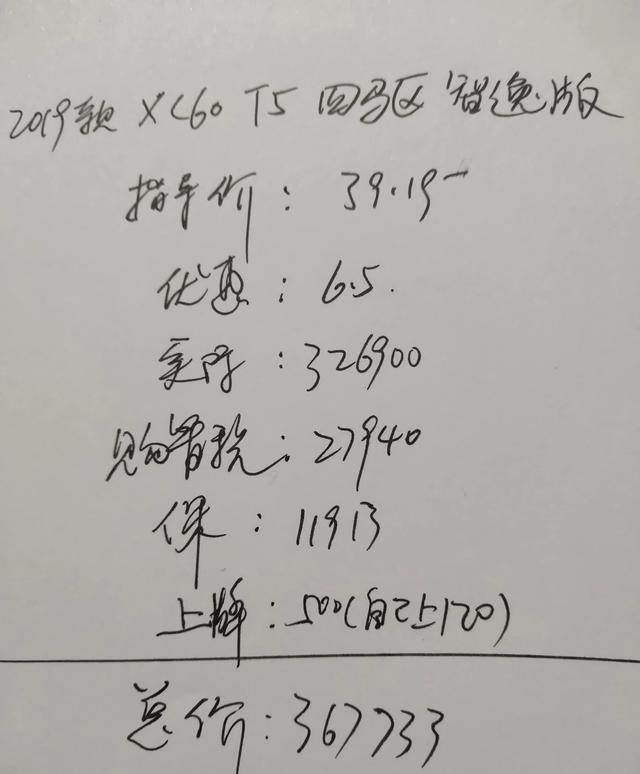 2019款 XC60 T5 四马区 智逸版
指导价：39.19
优惠：6.5.
实际：326900
购置税：27940
保：11913
上牌：500(自己上120)
总价：367733